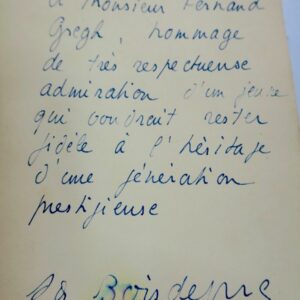 à Monsieur Fernand
Gregh, hommage
de très respectueuse
admiration d'un jeune
qui voudrait rester
fidèle à l'héritage
d'une génération
prestigieuse
Boisdeffre